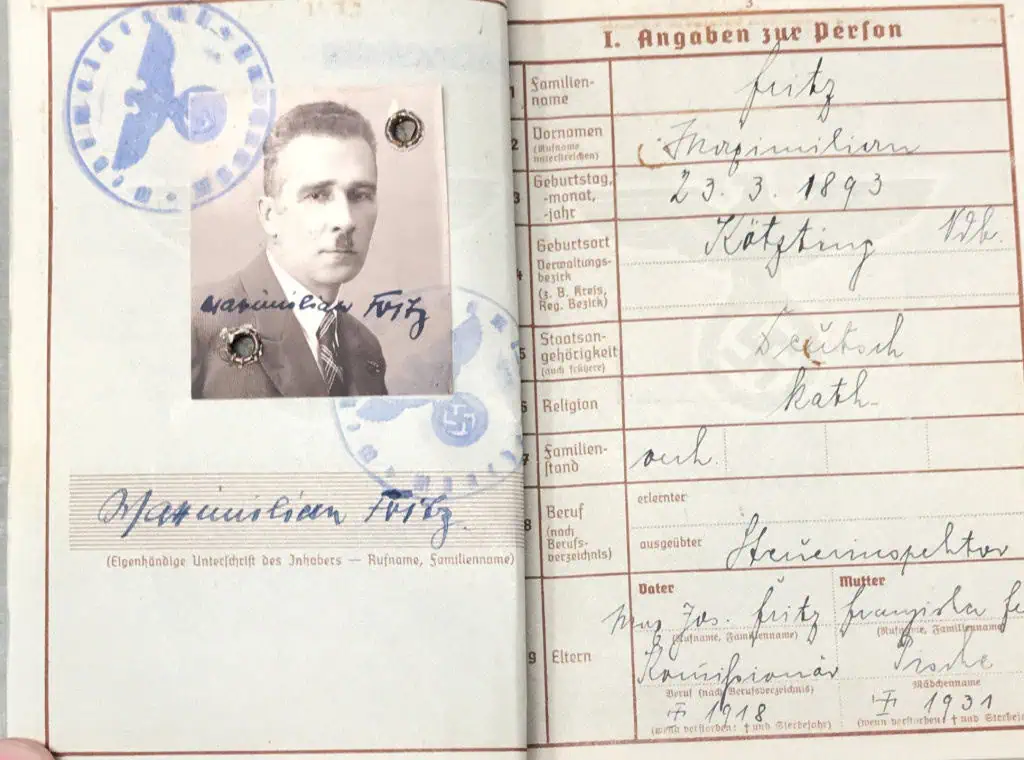 Maximilian Fritz
Maximilian Fritz.
(Eigenhändige Unterschrift des Inhabers — Rufname, Familienname)
3
I. Angaben zur Person
1 Familien-
name
Fritz
2 Vornamen
(Rufname
unterstreichen)
Maximilian
3 Geburtstag,
-monat,
-jahr
23. 3. 1893
4 Geburtsort
Verwaltungs-
bezirk
(z. B. Kreis,
Reg. Bezirk)
Kötzting Ndb.
5 Staatsan-
gehörigkeit
(auch frühere)
Deutsch
6 Religion
kath.
7 Familien-
stand
verh.
8 Beruf
(nach
Berufs-
verzeichnis)
erlernter
ausgeübter Steuerinspektor
9 Eltern
Vater Mutter
Jos. Fritz Franziska
(Rufname, Familienname) (Rufname, Familienname
Kommissionär
Beruf (nach Berufsverzeichnis) Mädchenname
1918 1931
(wenn verstorben: † und Sterbejahr) (wenn verstorben: † und Sterbej